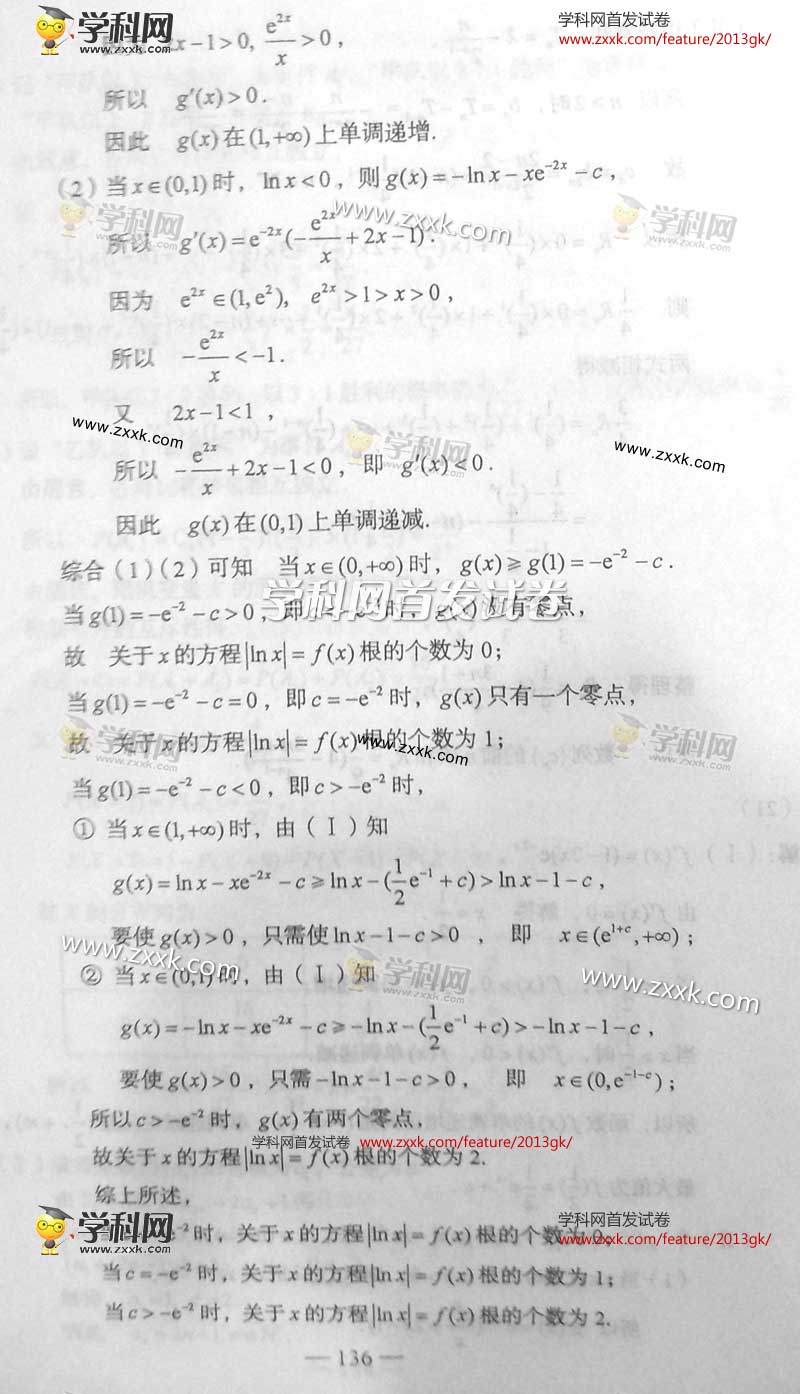 学科网
www.zxxk.com
学科网首发试卷
www.zxxk.com/feature/2013gk/
x−1>0, e^{2x}/x >0,
所以 g′(x)>0.
因此 g(x)在(1,+∞)上单调递增.
(2) 当x∈(0,1)时, ln x<0, 则g(x)=−ln x−xe^{−2x}−c,
学科网
www.zxxk.com
学科网
所以 g′(x)=e^{−2x}(−e^{2x}/x+2x−1).
因为 e^{2x}∈(1,e^2), e^{2x}>1>x>0,
所以 −e^{2x}/x<−1.
又 2x−1<1,
www.zxxk.com
学科网
www.zxxk.com
所以 −e^{2x}/x+2x−1<0, 即 g′(x)<0.
因此 g(x)在(0,1)上单调递减.
综合(1)(2)可知 当x∈(0,+∞)时, g(x)⩾g(1)=−e^{−2}−c.
学科网首发试卷
当g(1)=−e^{−2}−c>0, 即 时, g(x) 有零点,
故 关于x的方程|ln x|=f(x)根的个数为0;
当g(1)=−e^{−2}−c=0, 即c=−e^{−2}时, g(x)只有一个零点,
学科网
www.zxxk.com
学科网
故 关于x的方程|ln x|=f(x)根的个数为1;
当g(1)=−e^{−2}−c<0, 即c>−e^{−2}时,
① 当x∈(1,+∞)时, 由(Ⅰ)知
g(x)=ln x−xe^{−2x}−c⩾ln x−(1/2 e^{−1}+c)>ln x−1−c,
要使g(x)>0, 只需使ln x−1−c>0, 即 x∈(e^{1+c},+∞);
www.zxxk.com
学科网
www.zxxk.com
② 当x∈(0,1)时, 由(Ⅰ)知
g(x)=−ln x−xe^{−2x}−c⩾−ln x−(1/2 e^{−1}+c)>−ln x−1−c,
要使g(x)>0, 只需−ln x−1−c>0, 即 x∈(0,e^{−1−c});
所以c>−e^{−2}时, g(x)有两个零点,
学科网首发试卷 www.zxxk.com/feature/2013gk/
故关于x的方程|ln x|=f(x)根的个数为2.
综上所述,
学科网
www.zxxk.com
学科网首发试卷
www.zxxk.com/feature/2013gk/
e^{−2}时, 关于x的方程|ln x|=f(x)根的个数为0;
当c=−e^{−2}时, 关于x的方程|ln x|=f(x)根的个数为1;
当c>−e^{−2}时, 关于x的方程|ln x|=f(x)根的个数为2.
— 136 —